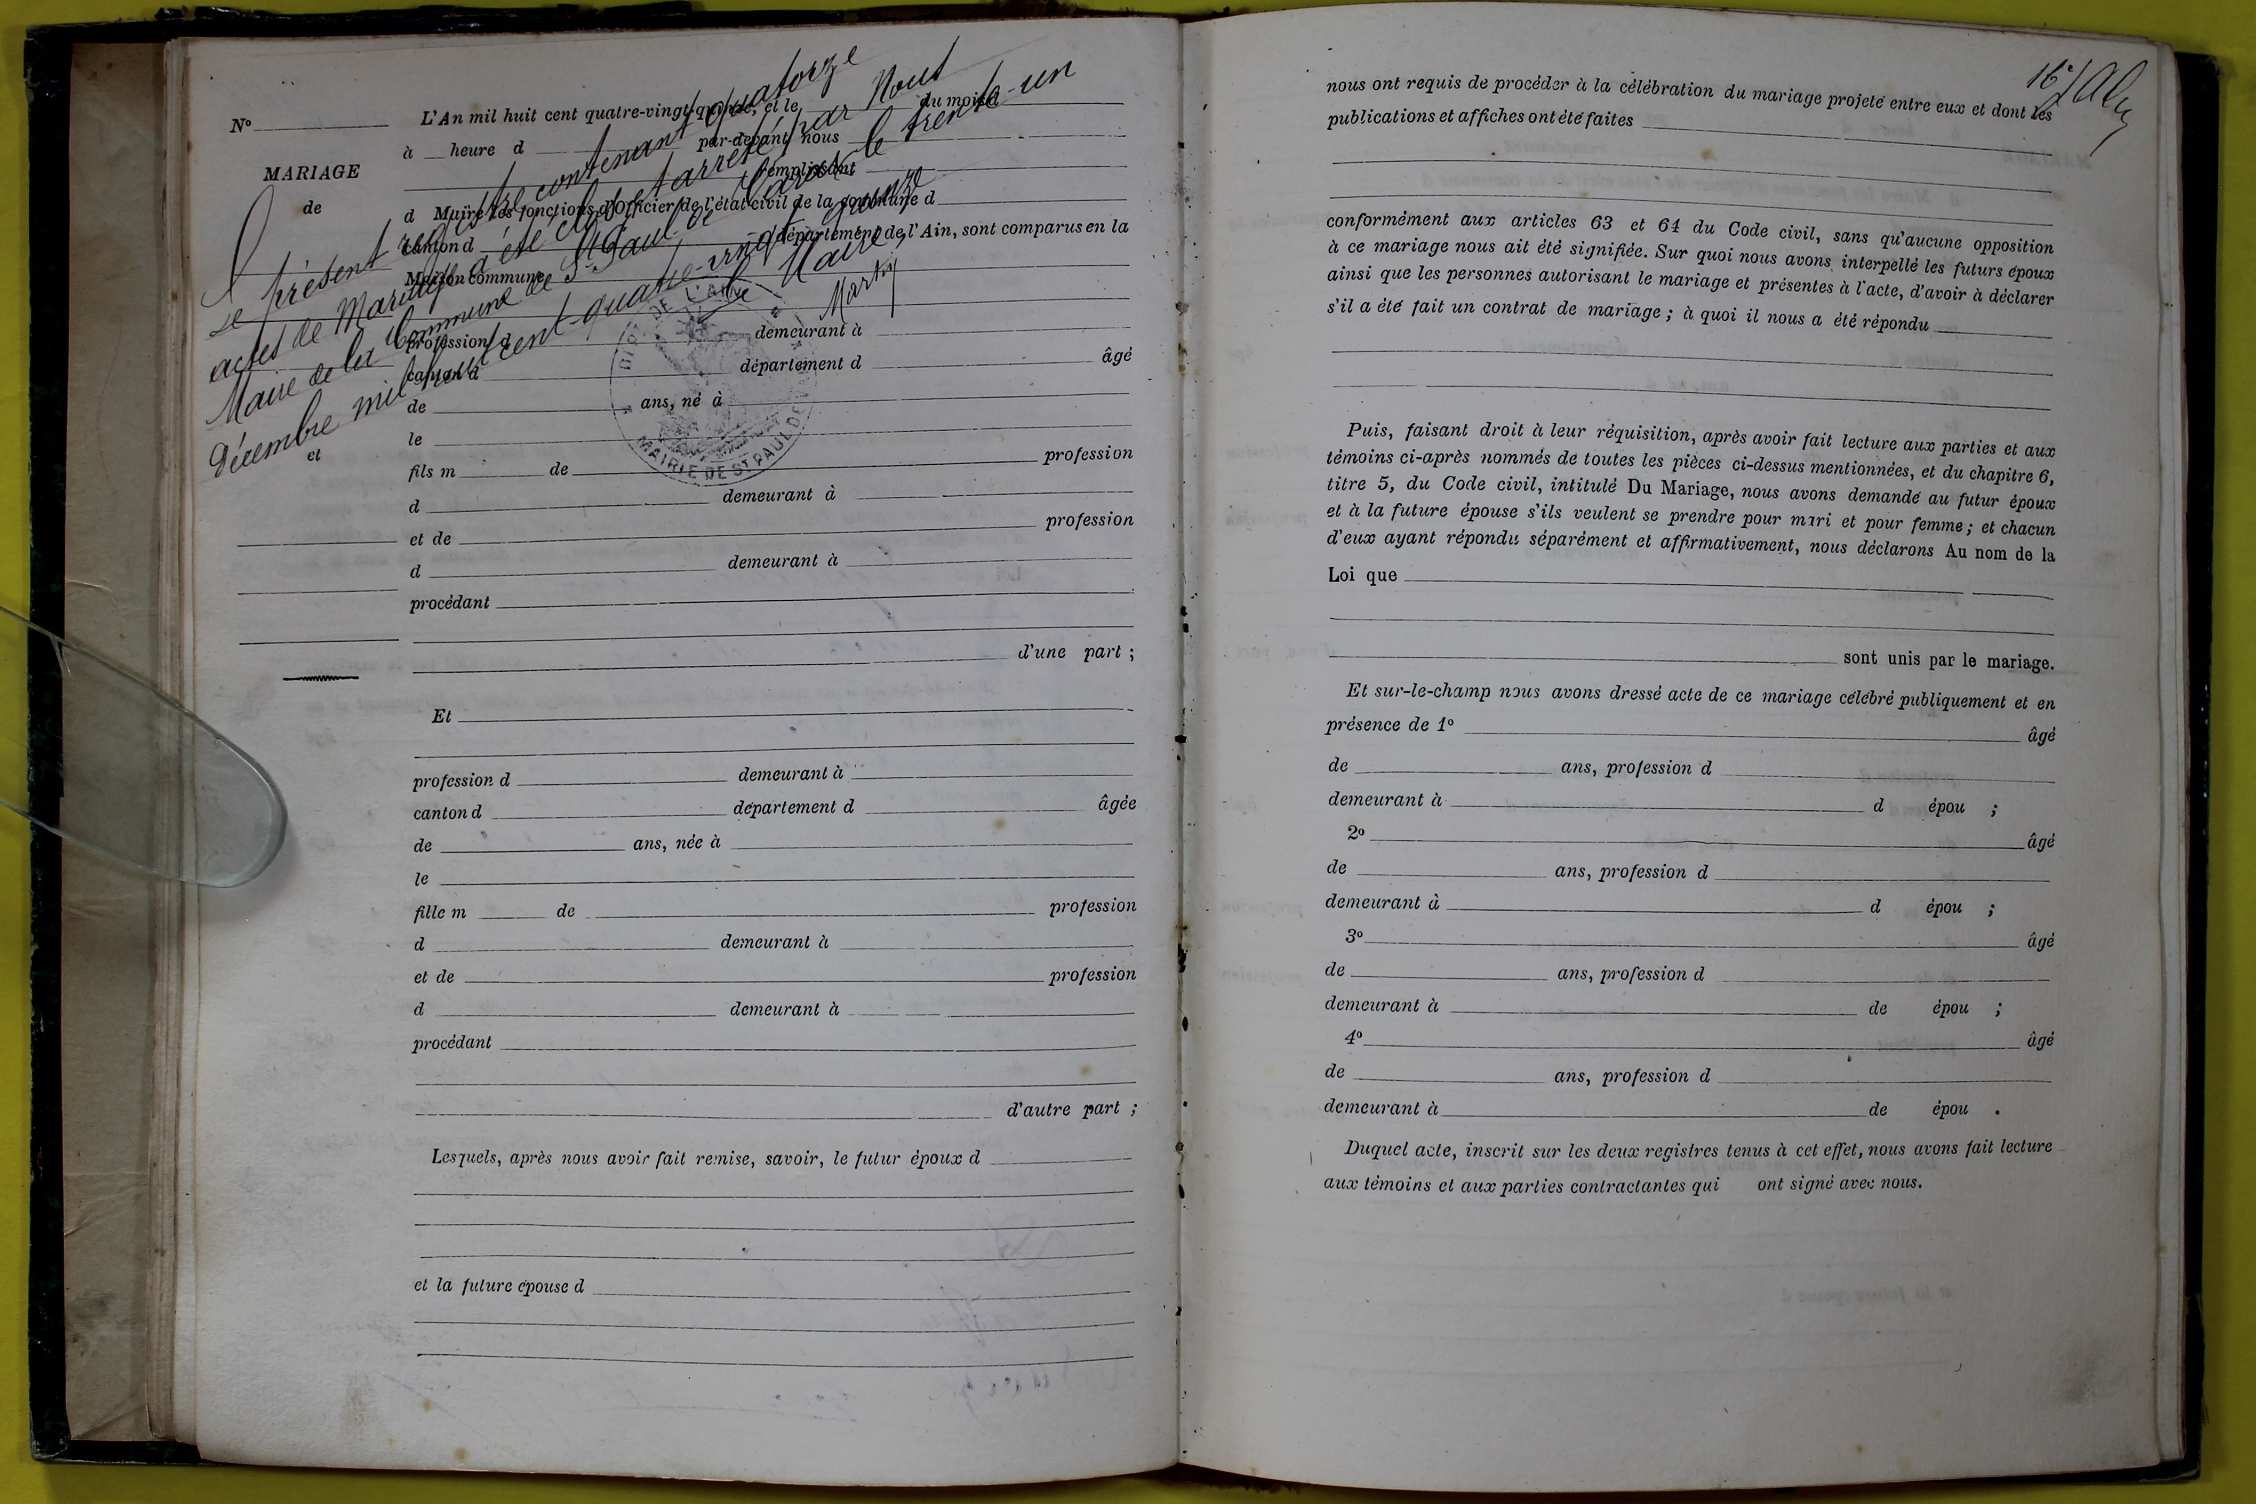 Le présent registre contenant quatorze
actes de Mariage a été clos et arrêté par Nous
Maire de la Commune de St Paul de Varax le trente-un
Décembre mil huit cent quatre-vingt-quinze
Le Maire,
Martin
No
MARIAGE
de
et
L'An mil huit cent quatre-vingt-quinze, et le du mois d
à heure d par-devant nous
remplissant
d Maire les fonctions d'Officier de l'état civil de la commune d
canton d département de l'Ain, sont comparus en la
Maison commune
profession d demeurant à
canton d département d âgé
de ans, né à
le
fils m de profession
d demeurant à
et de profession
d demeurant à
procédant
d'une part ;
Et
profession d demeurant à
canton d département d âgée
de ans, née à
le
fille m de profession
d demeurant à
et de profession
d demeurant à
procédant
d'autre part ;
Lesquels, après nous avoir fait remise, savoir, le futur époux d
et la future épouse d
DÉPT DE L'AIN
MAIRIE DE ST PAUL DE
16e
nous ont requis de procéder à la célébration du mariage projeté entre eux et dont les
publications et affiches ont été faites
conformément aux articles 63 et 64 du Code civil, sans qu'aucune opposition
à ce mariage nous ait été signifiée. Sur quoi nous avons interpellé les futurs époux
ainsi que les personnes autorisant le mariage et présentes à l'acte, d'avoir à déclarer
s'il a été fait un contrat de mariage ; à quoi il nous a été répondu
Puis, faisant droit à leur réquisition, après avoir fait lecture aux parties et aux
témoins ci-après nommés de toutes les pièces ci-dessus mentionnées, et du chapitre 6,
titre 5, du Code civil, intitulé Du Mariage, nous avons demandé au futur époux
et à la future épouse s'ils veulent se prendre pour mari et pour femme ; et chacun
d'eux ayant répondu séparément et affirmativement, nous déclarons Au nom de la
Loi que
sont unis par le mariage.
Et sur-le-champ nous avons dressé acte de ce mariage célébré publiquement et en
présence de 1o âgé
de ans, profession d
demeurant à d épou ;
2o âgé
de ans, profession d
demeurant à d épou ;
3o âgé
de ans, profession d
demeurant à de épou ;
4o âgé
de ans, profession d
demeurant à de épou .
Duquel acte, inscrit sur les deux registres tenus à cet effet, nous avons fait lecture
aux témoins et aux parties contractantes qui ont signé avec nous.